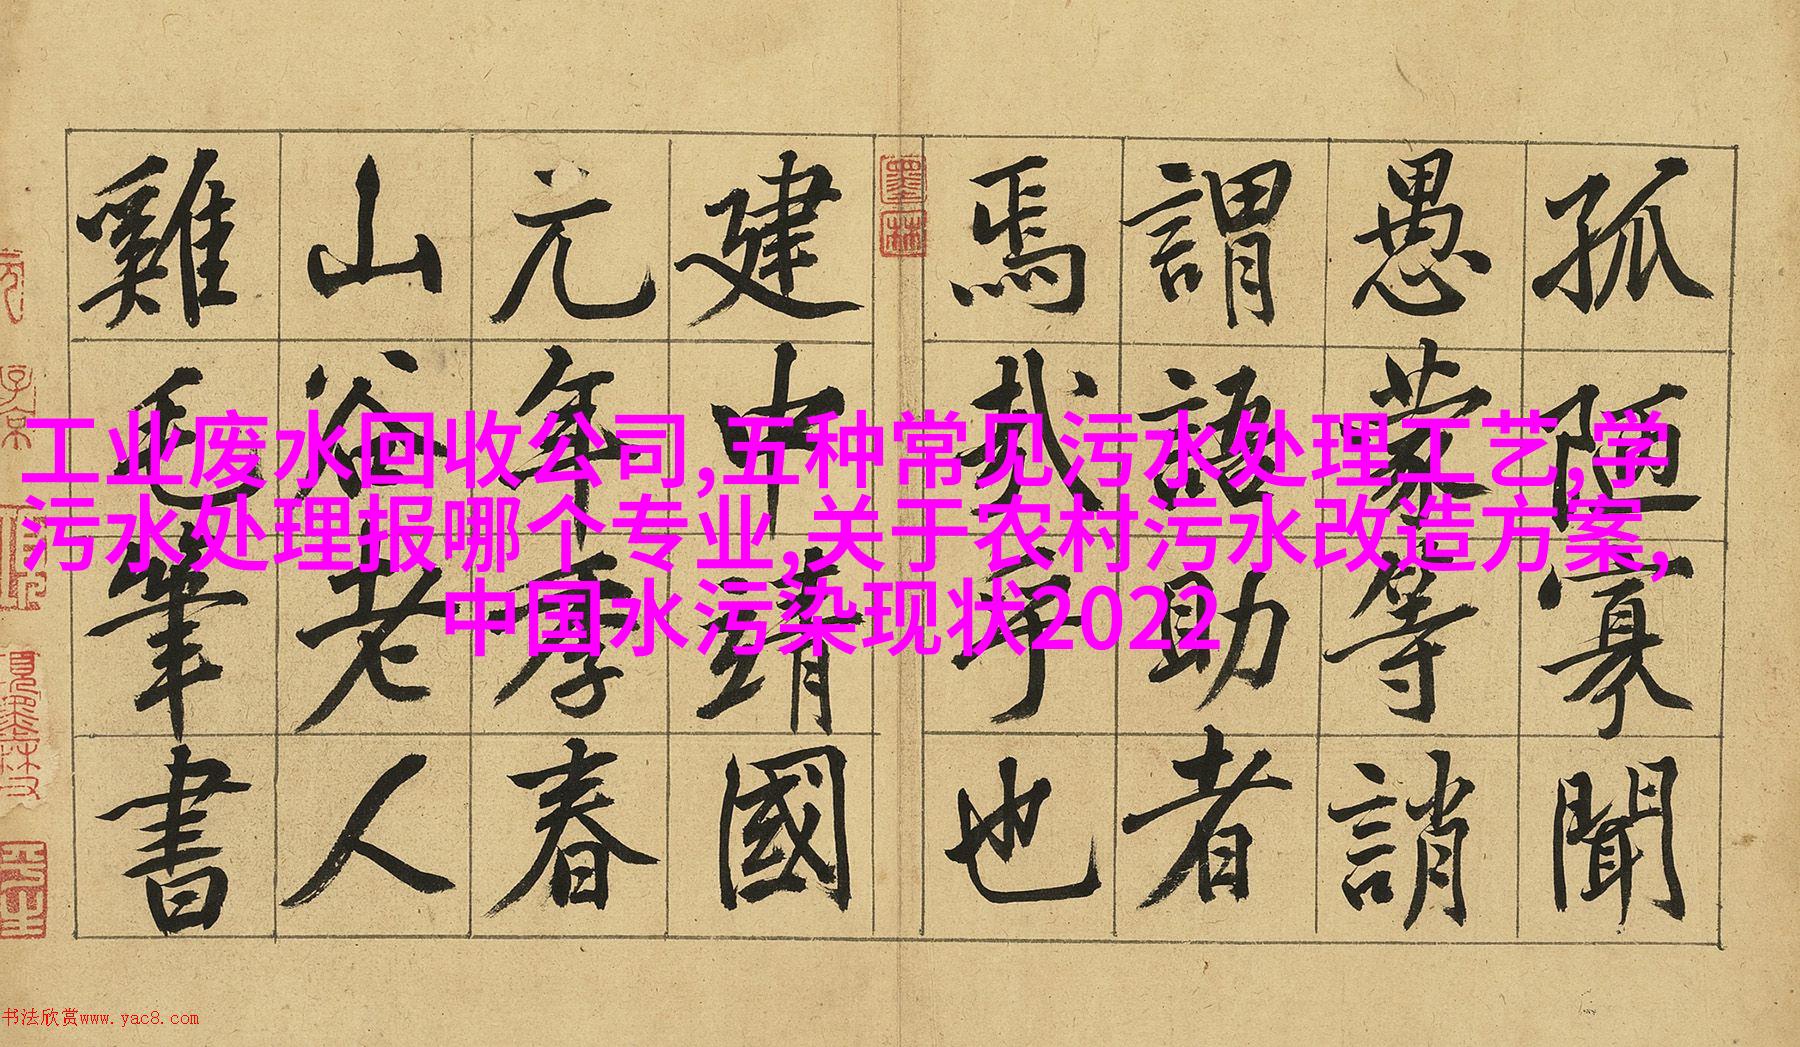 孤陋寡聞
愚蒙等誚
謂語助者
焉哉乎也
墨林
建中靖國
元年季春
山谷老人
雞毛筆書
子京
工业废水回收公司,五种常见污水处理工艺,学
污水处理报哪个专业,关于农村污水改造方案,
中国水污染现状2022
书法欣赏www.yac8.com